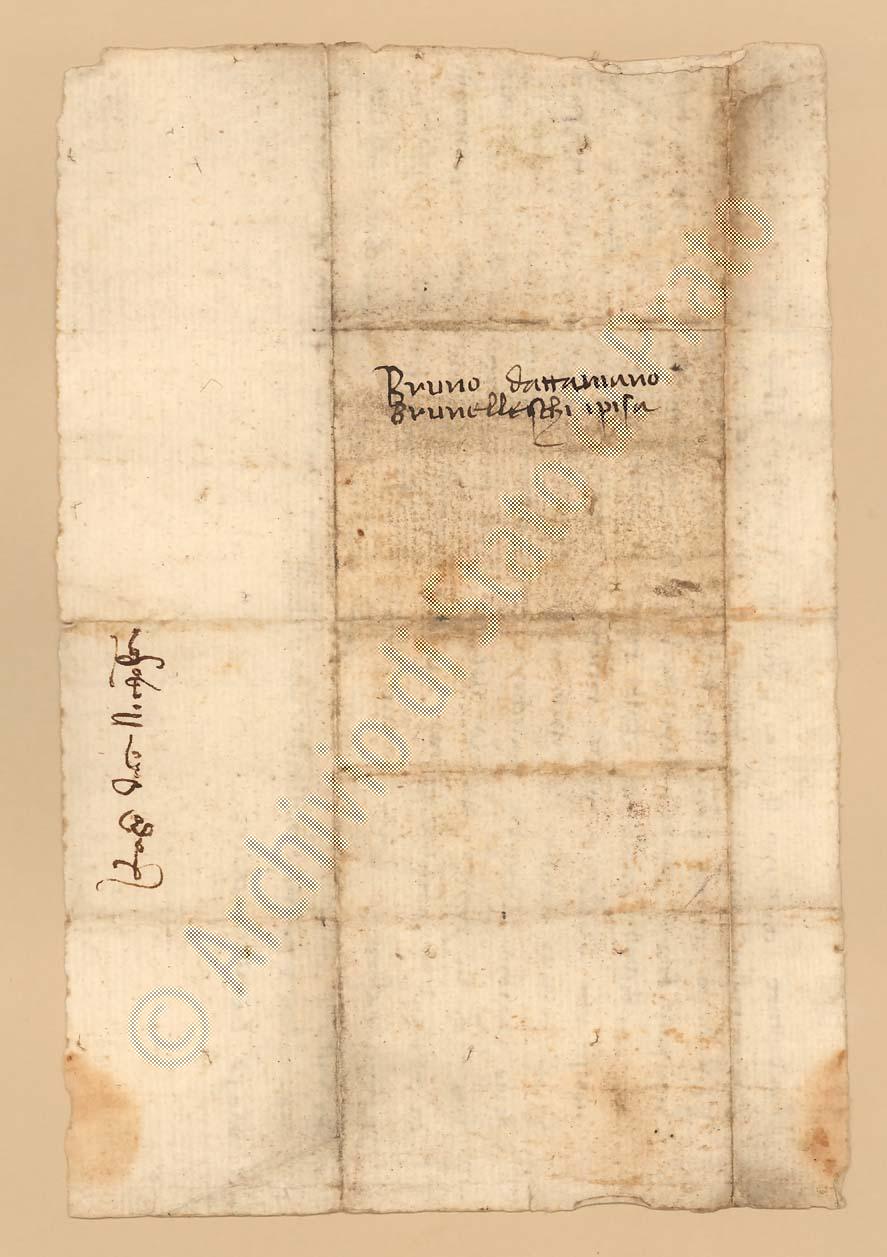 Bruno dattaviano
Brunelleschi ipisa
© Archivio di Stato di Prato